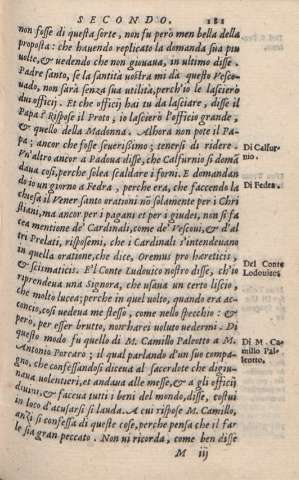 SECONDO. 181
non fosse di questa sorte, non fu però men bella della
proposta: che hauendo replicato la domanda sua piu
uolte, & uedendo che non giouaua, in ultimo disse.
Padre santo, se la santità uostra mi da questo Vesco-
uado, non sarà senza sua utilità, perch'io le lascierò
duo officij. Et che officij hai tu da lasciare, disse il
Papa? Rispose il Proto, io lascierò l'officio grande,
& quello della Madonna. Alhora non pote il Pa-
pa; ancor che fosse seuerissimo; tenersi di ridere.
Vn'altro ancor a Padoua disse, che Calfurnio si doman
daua cosi, perche solea scaldare i forni. E domandan
do io un giorno a Fedra, perche era, che faccendo la
chiesa il Vener santo orationi nō solamente per i Chri
stiani, ma ancor per i pagani et per i giudei, non si fa
cea mentione de' Cardinali, come de' Vescoui, & d'al
tri Prelati, risposemi, che i Cardinali s'intendeuano
in quella oratione, che dice, Oremus pro hæreticis,
& scismaticis. E'l Conte Ludouico nostro disse, ch'io
riprendeua una Signora, che usaua un certo liscio,
che molto lucea; perche in quel uolto, quando era ac-
concio, cosi uedeua me stesso, come nello specchio: &
però, per esser brutto, non harei uoluto uedermi. Di
questo modo fu quello di M. Camillo Paleotto a M.
Antonio Porcaro; il qual parlando d'un suo compa-
gno, che confessandosi diceua al sacerdote che digiu-
naua uolentieri, et andaua alle messe, & a gli officij
diuini, & faceua tutti i beni del mondo, disse, costui
in loco d'acusarsi si lauda. A cui rispose M. Camillo,
anzi si confessa di queste cose, perche pensa che il far
le sia gran peccato. Non ui ricorda, come ben disse
M iij
Di Calfur-
nio.
Di Fedra.
Del Conte
Lodouico.
Di M. Ca-
millo Pa-
leotto.